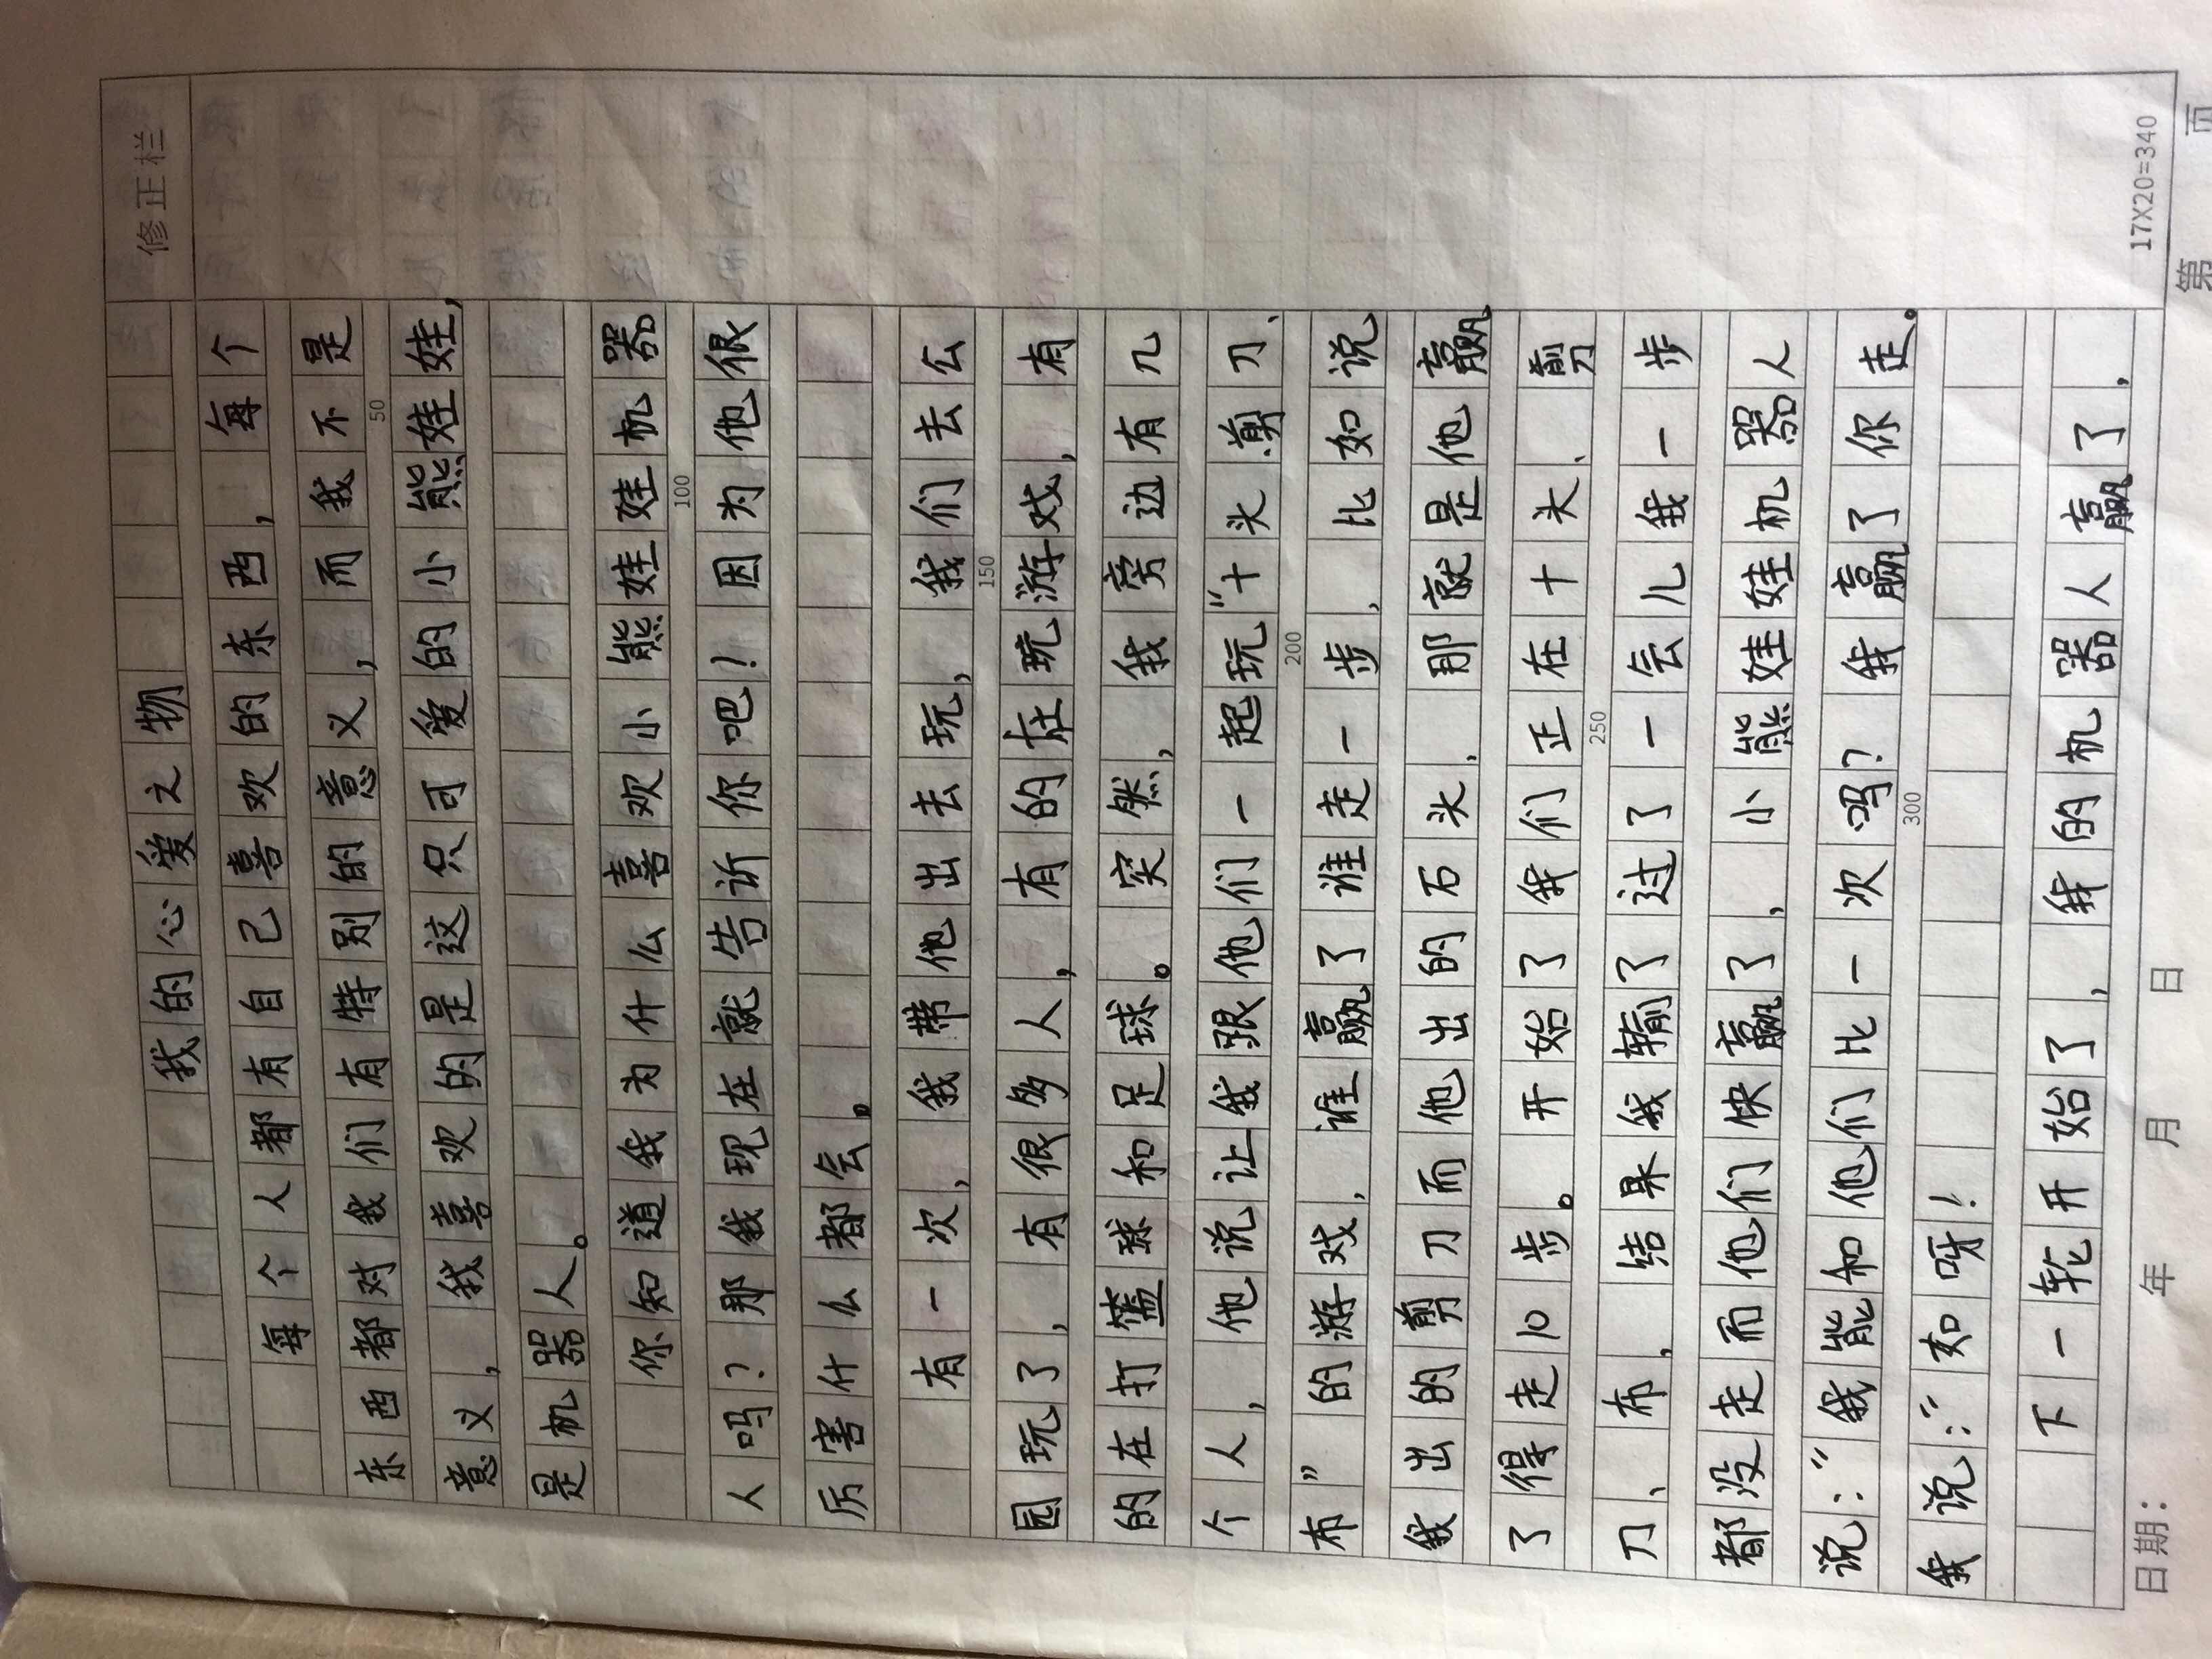 修正栏
我的心爱之物
每个人都有自己喜欢的东西，每个
东西都对我们有特别的意义，而我不是
50
意义，我喜欢的是这只可爱的小熊娃娃，
是机器人。
你知道我为什么喜欢小熊娃娃机器
100
人吗？那我现在就告诉你吧！因为他很
厉害什么都会。
有一次，我带他出去玩，我们去么
150
园玩了，有很多人，有的在玩游戏，有
的在打篮球和足球。突然，我旁边有几
个人，他说让我跟他们一起玩“十头剪刀、
200
布”的游戏，谁赢了谁走一步，比如说
我出的剪刀而他出的石头，那就是他赢
了得走10步。开始了我们正在十头、剪
250
刀、布，结果我输了过了一会儿我一步
都没走而他们快赢了，小熊娃娃机器人
说：“我能和他们比一次吗？我赢了你走。
300
我说：“如呀！
下一轮开始了，我的机器人赢了，
17X20=340
日期： 年 月 日
第 页